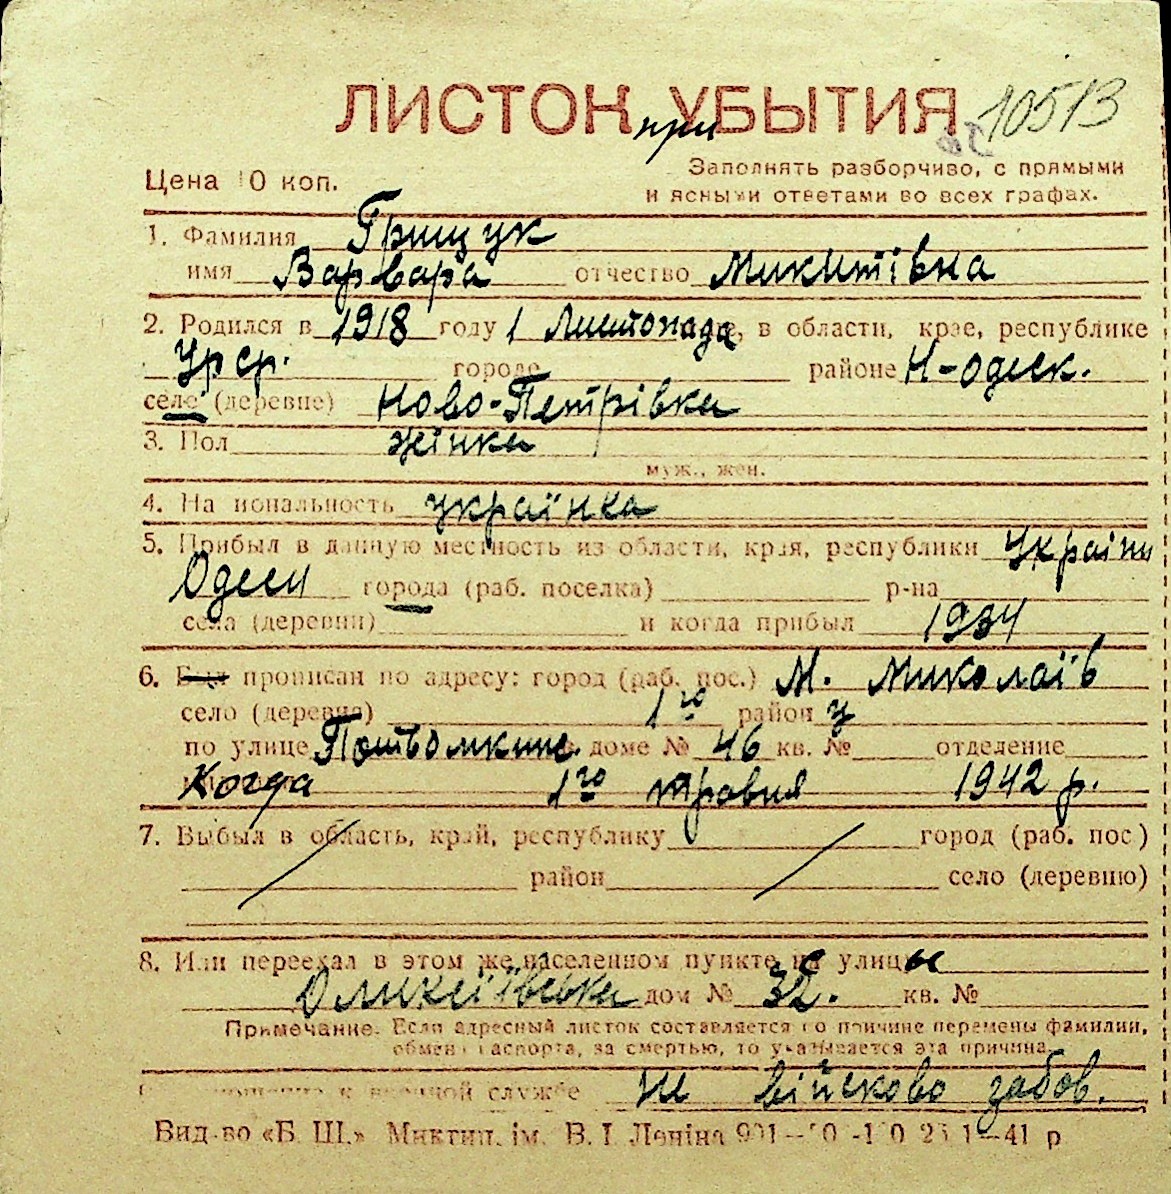 ЛИСТОК УБЫТИЯ 10513
при
Цена 10 коп.
Заполнять разборчиво, с прямыми
и ясными ответами во всех графах.
1. Фамилия Грищук
имя Варвара отчество Микитівна
2. Родился в 1918 году 1 Листопада, в области, крае, республике
Урср. городе районе Н-одеск.
село (деревне) Ново-Петрівка
3. Пол жінка
муж., жен.
4. Национальность українка
5. Прибыл в данную местность из области, края, республики України
Одеси города (раб. поселка) р-на
села (деревни) и когда прибыл 1934
6. Был прописан по адресу: город (раб. пос.) М. Миколаїв
село (деревня) 1го район у
по улице доме № 46 кв. № отделение
Когда 1го травня 1942 р.
7. Выбыл в область, край, республику город (раб. пос)
район село (деревню)
8. Или переехал в этом же населенном пункте на улицы
дом № 32. кв. №
Примечание. Если адресный листок составляется по причине перемены фамилии,
обмена паспорта, за смертью, то указывается эта причина.
к военной службе не військово забов.
Вид-во «Б. Ш.» Миктип. ім. В. І. Леніна